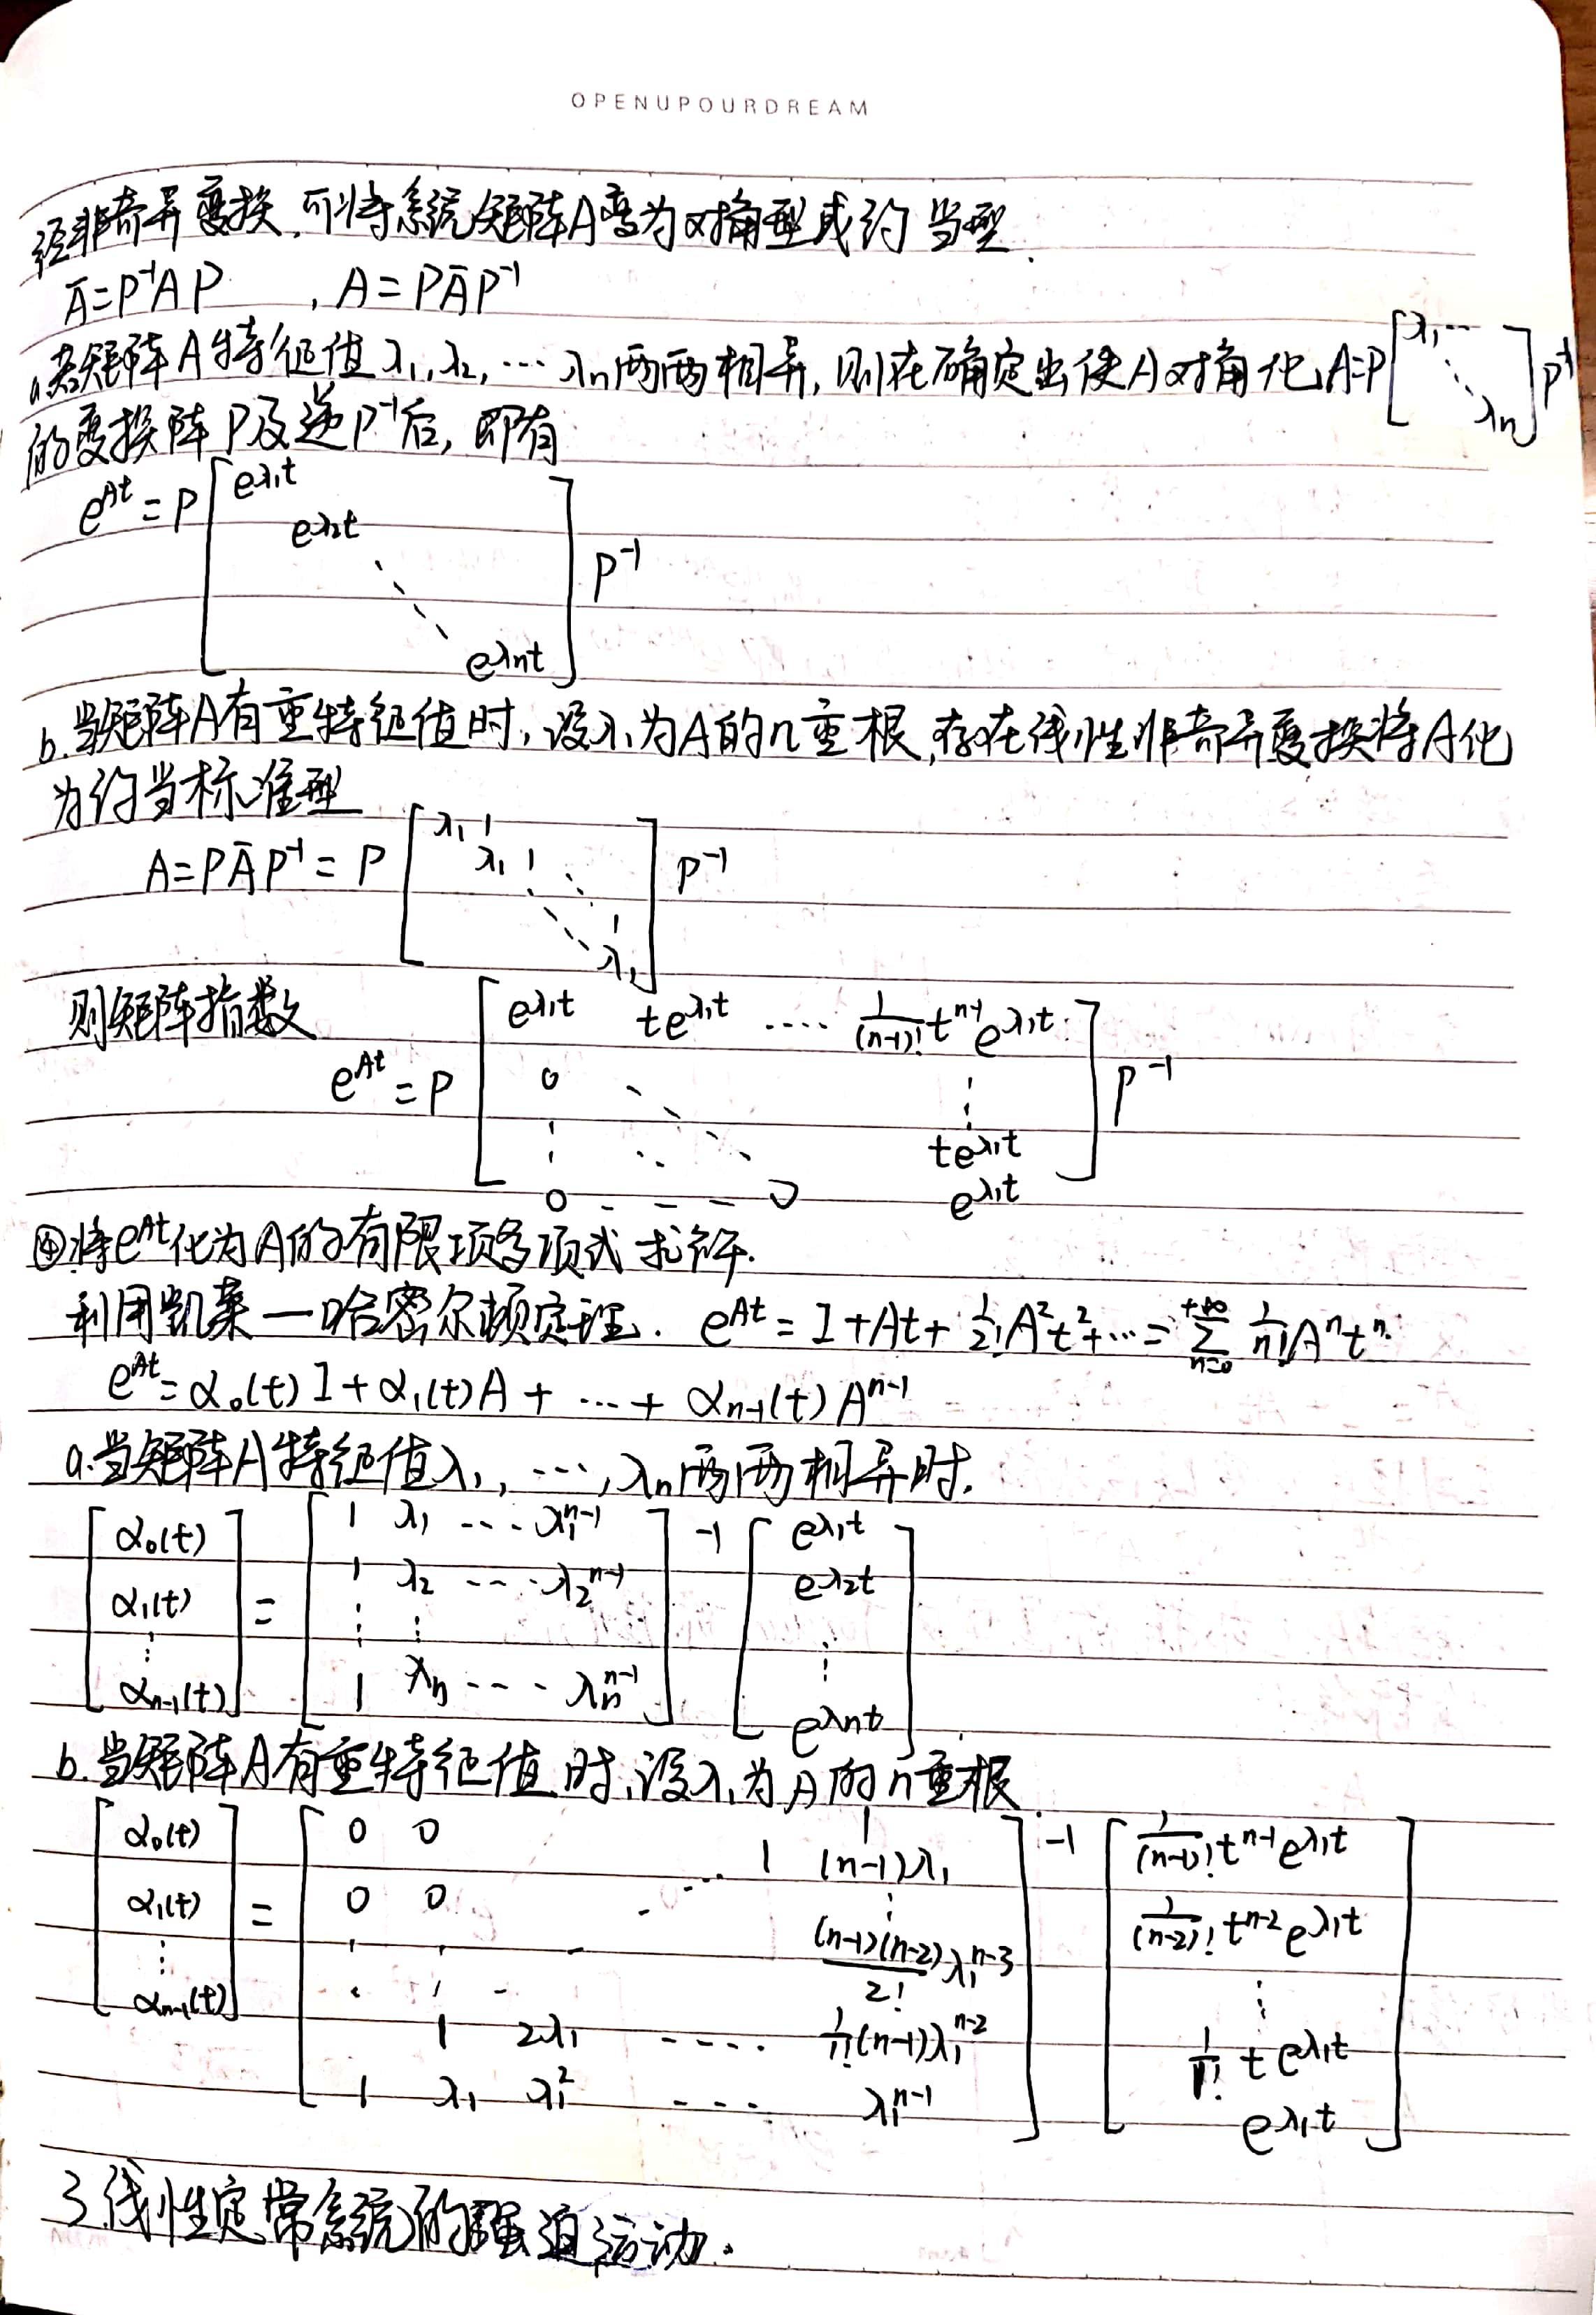 OPENUPOURDREAM
经非奇异变换,可将系统矩阵A变为对角型或约当型.
Ā=P⁻¹AP , A=PĀP⁻¹
a.若矩阵A特征值λ₁,λ₂,…λn两两相异,则在确定出使A对角化A=P[λ₁ ⋱ λn]P⁻¹
的变换阵P及逆P⁻¹后,即有
e^{At}=P[e^{λ₁t} e^{λ₂t} ⋱ e^{λnt}]P⁻¹
b.当矩阵A有重特征值时,设λ₁为A的n重根,存在线性非奇异变换将A化
为约当标准型
A=PĀP⁻¹=P[λ₁ 1 λ₁ 1 ⋱ 1 λ₁]P⁻¹
则矩阵指数
e^{At}=P[e^{λ₁t} te^{λ₁t} … 1/(n-1)! t^{n-1}e^{λ₁t}
0 ⋱ ⋮
⋮ te^{λ₁t}
0 - - - 0 e^{λ₁t}]P⁻¹
④将e^{At}化为A的有限项多项式求解.
利用凯莱一哈密尔顿定理. e^{At}=I+At+1/2! A²t²+…=∑_{n=0}^{+∞} 1/n! Aⁿtⁿ
e^{At}=α₀(t)I+α₁(t)A+…+α_{n-1}(t)A^{n-1}
a.当矩阵A特征值λ₁,…,λn两两相异时.
[α₀(t) α₁(t) ⋮ α_{n-1}(t)] = [1 λ₁ … λ₁^{n-1}
1 λ₂ … λ₂^{n-1}
⋮ ⋮
1 λn … λn^{n-1}]⁻¹ [e^{λ₁t} e^{λ₂t} ⋮ e^{λnt}]
b.当矩阵A有重特征值时,设λ₁为A的n重根
[α₀(t) α₁(t) ⋮ α_{n-1}(t)] = [0 0 1
0 0 … 1 (n-1)λ₁
⋮ ⋮ (n-1)(n-2)/2! λ₁^{n-3}
1 2λ₁ … 1/1! (n-1)λ₁^{n-2}
1 λ₁ λ₁² … λ₁^{n-1}]⁻¹ [1/(n-1)! t^{n-1}e^{λ₁t} 1/(n-2)! t^{n-2}e^{λ₁t} ⋮ 1/1! te^{λ₁t} e^{λ₁t}]
3.线性定常系统的强迫运动.